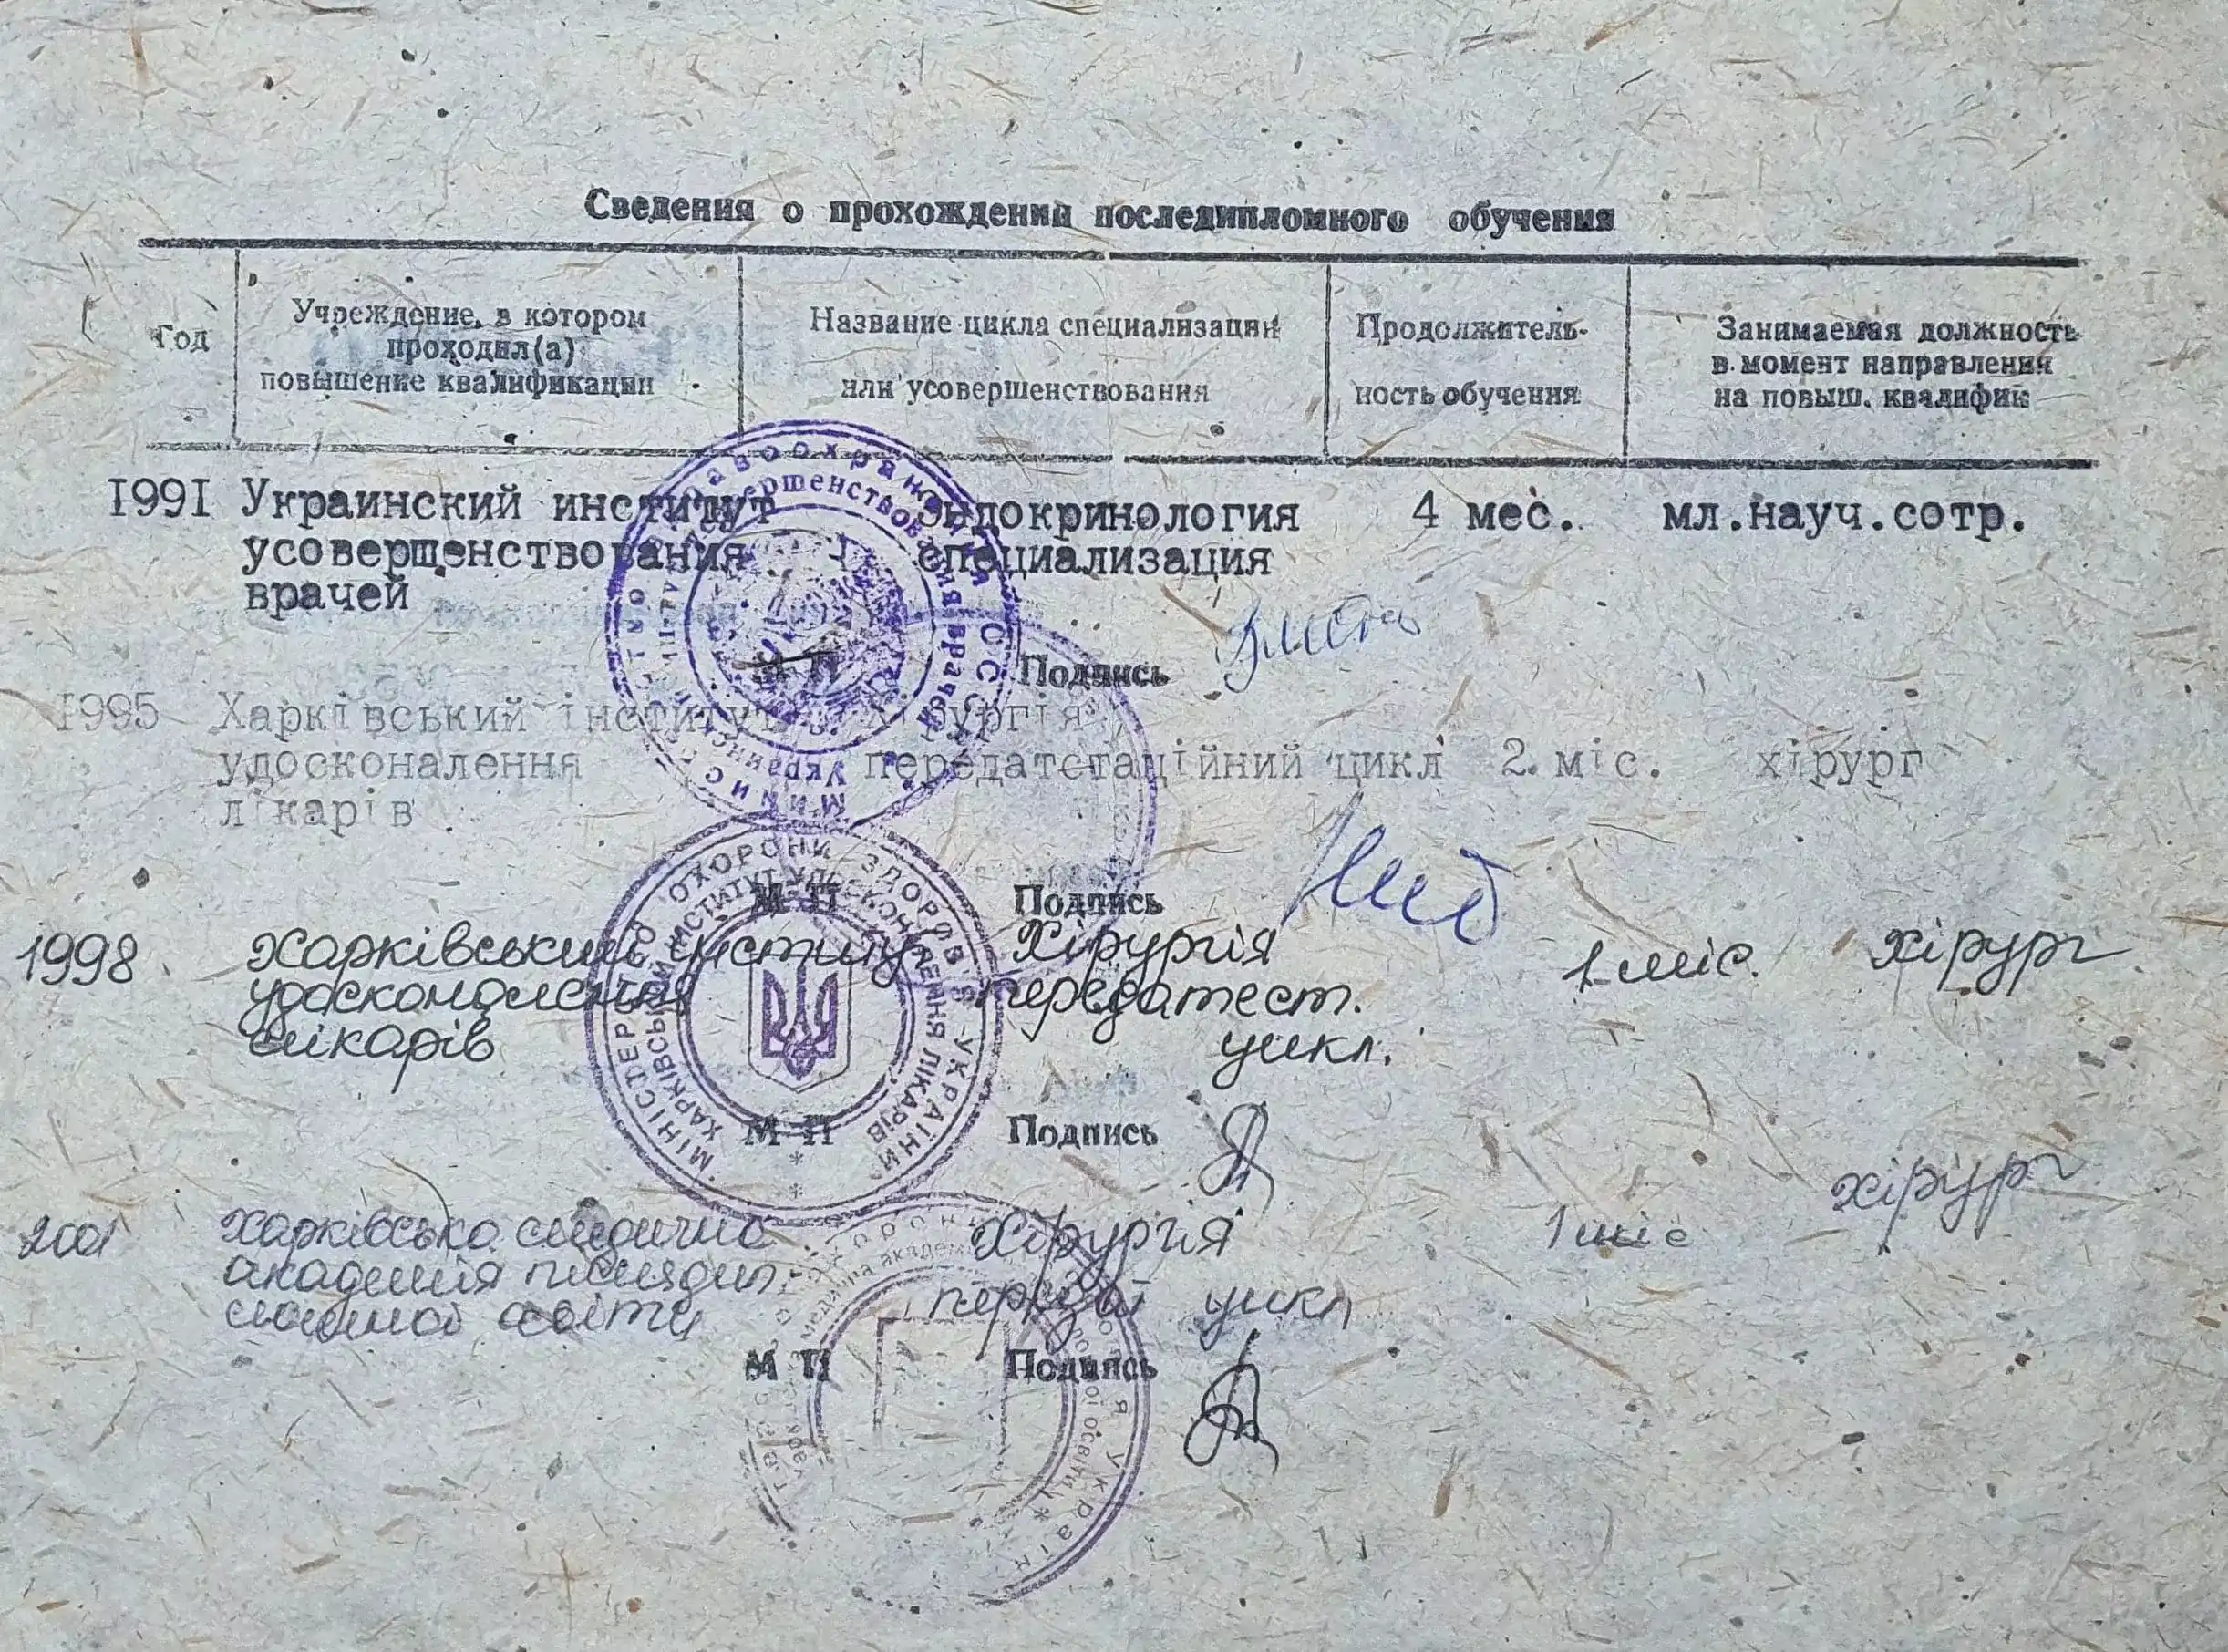 Сведения о прохождении последипломного обучения
Год
Учреждение, в котором
проходил(а)
повышение квалификации
Название цикла специализации
или усовершенствования
Продолжитель-
ность обучения
Занимаемая должность
в момент направления
на повыш. квалифик
I99I Украинский институт эндокринология 4 мес. мл.науч.сотр.
усовершенствования специализация
врачей
М П Подпись
I995 Харківський інститут хірургія
удосконалення передатєстаційний цикл 2 міс. хірург
лікарів
М П Подпись
1998 Харківський інститут Хірургія 1 міс. хірург
удосконалення передатест.
лікарів цикл.
М П Подпись
2001 Харківська медична Хірургія 1 міс хірург
академія післядип цикл
ломної освіти
М П Подпись
МІНІСТЕРСТВО ОХОРОНИ ЗДОРОВ'Я УКРАЇНИ
ХАРКІВСЬКИЙ ІНСТИТУТ УДОСКОНАЛЕННЯ ЛІКАРІВ